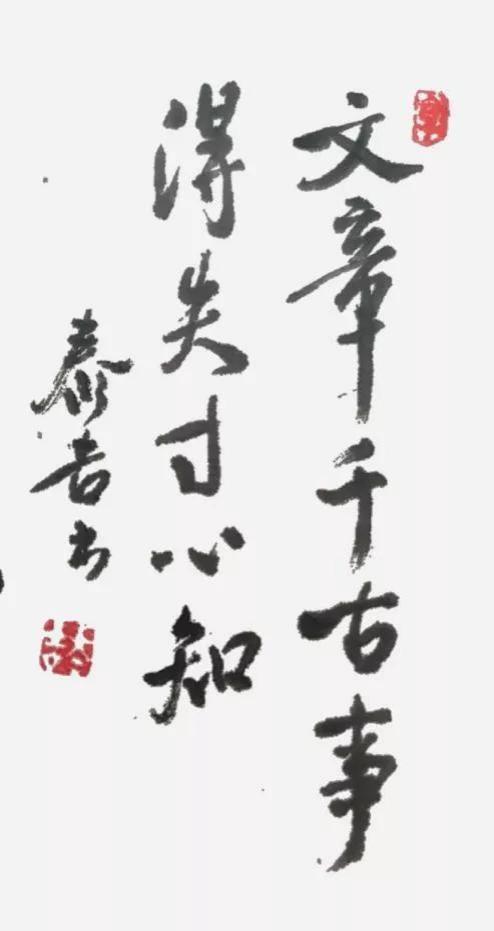 文章千古事
得失寸心知
泰吉书